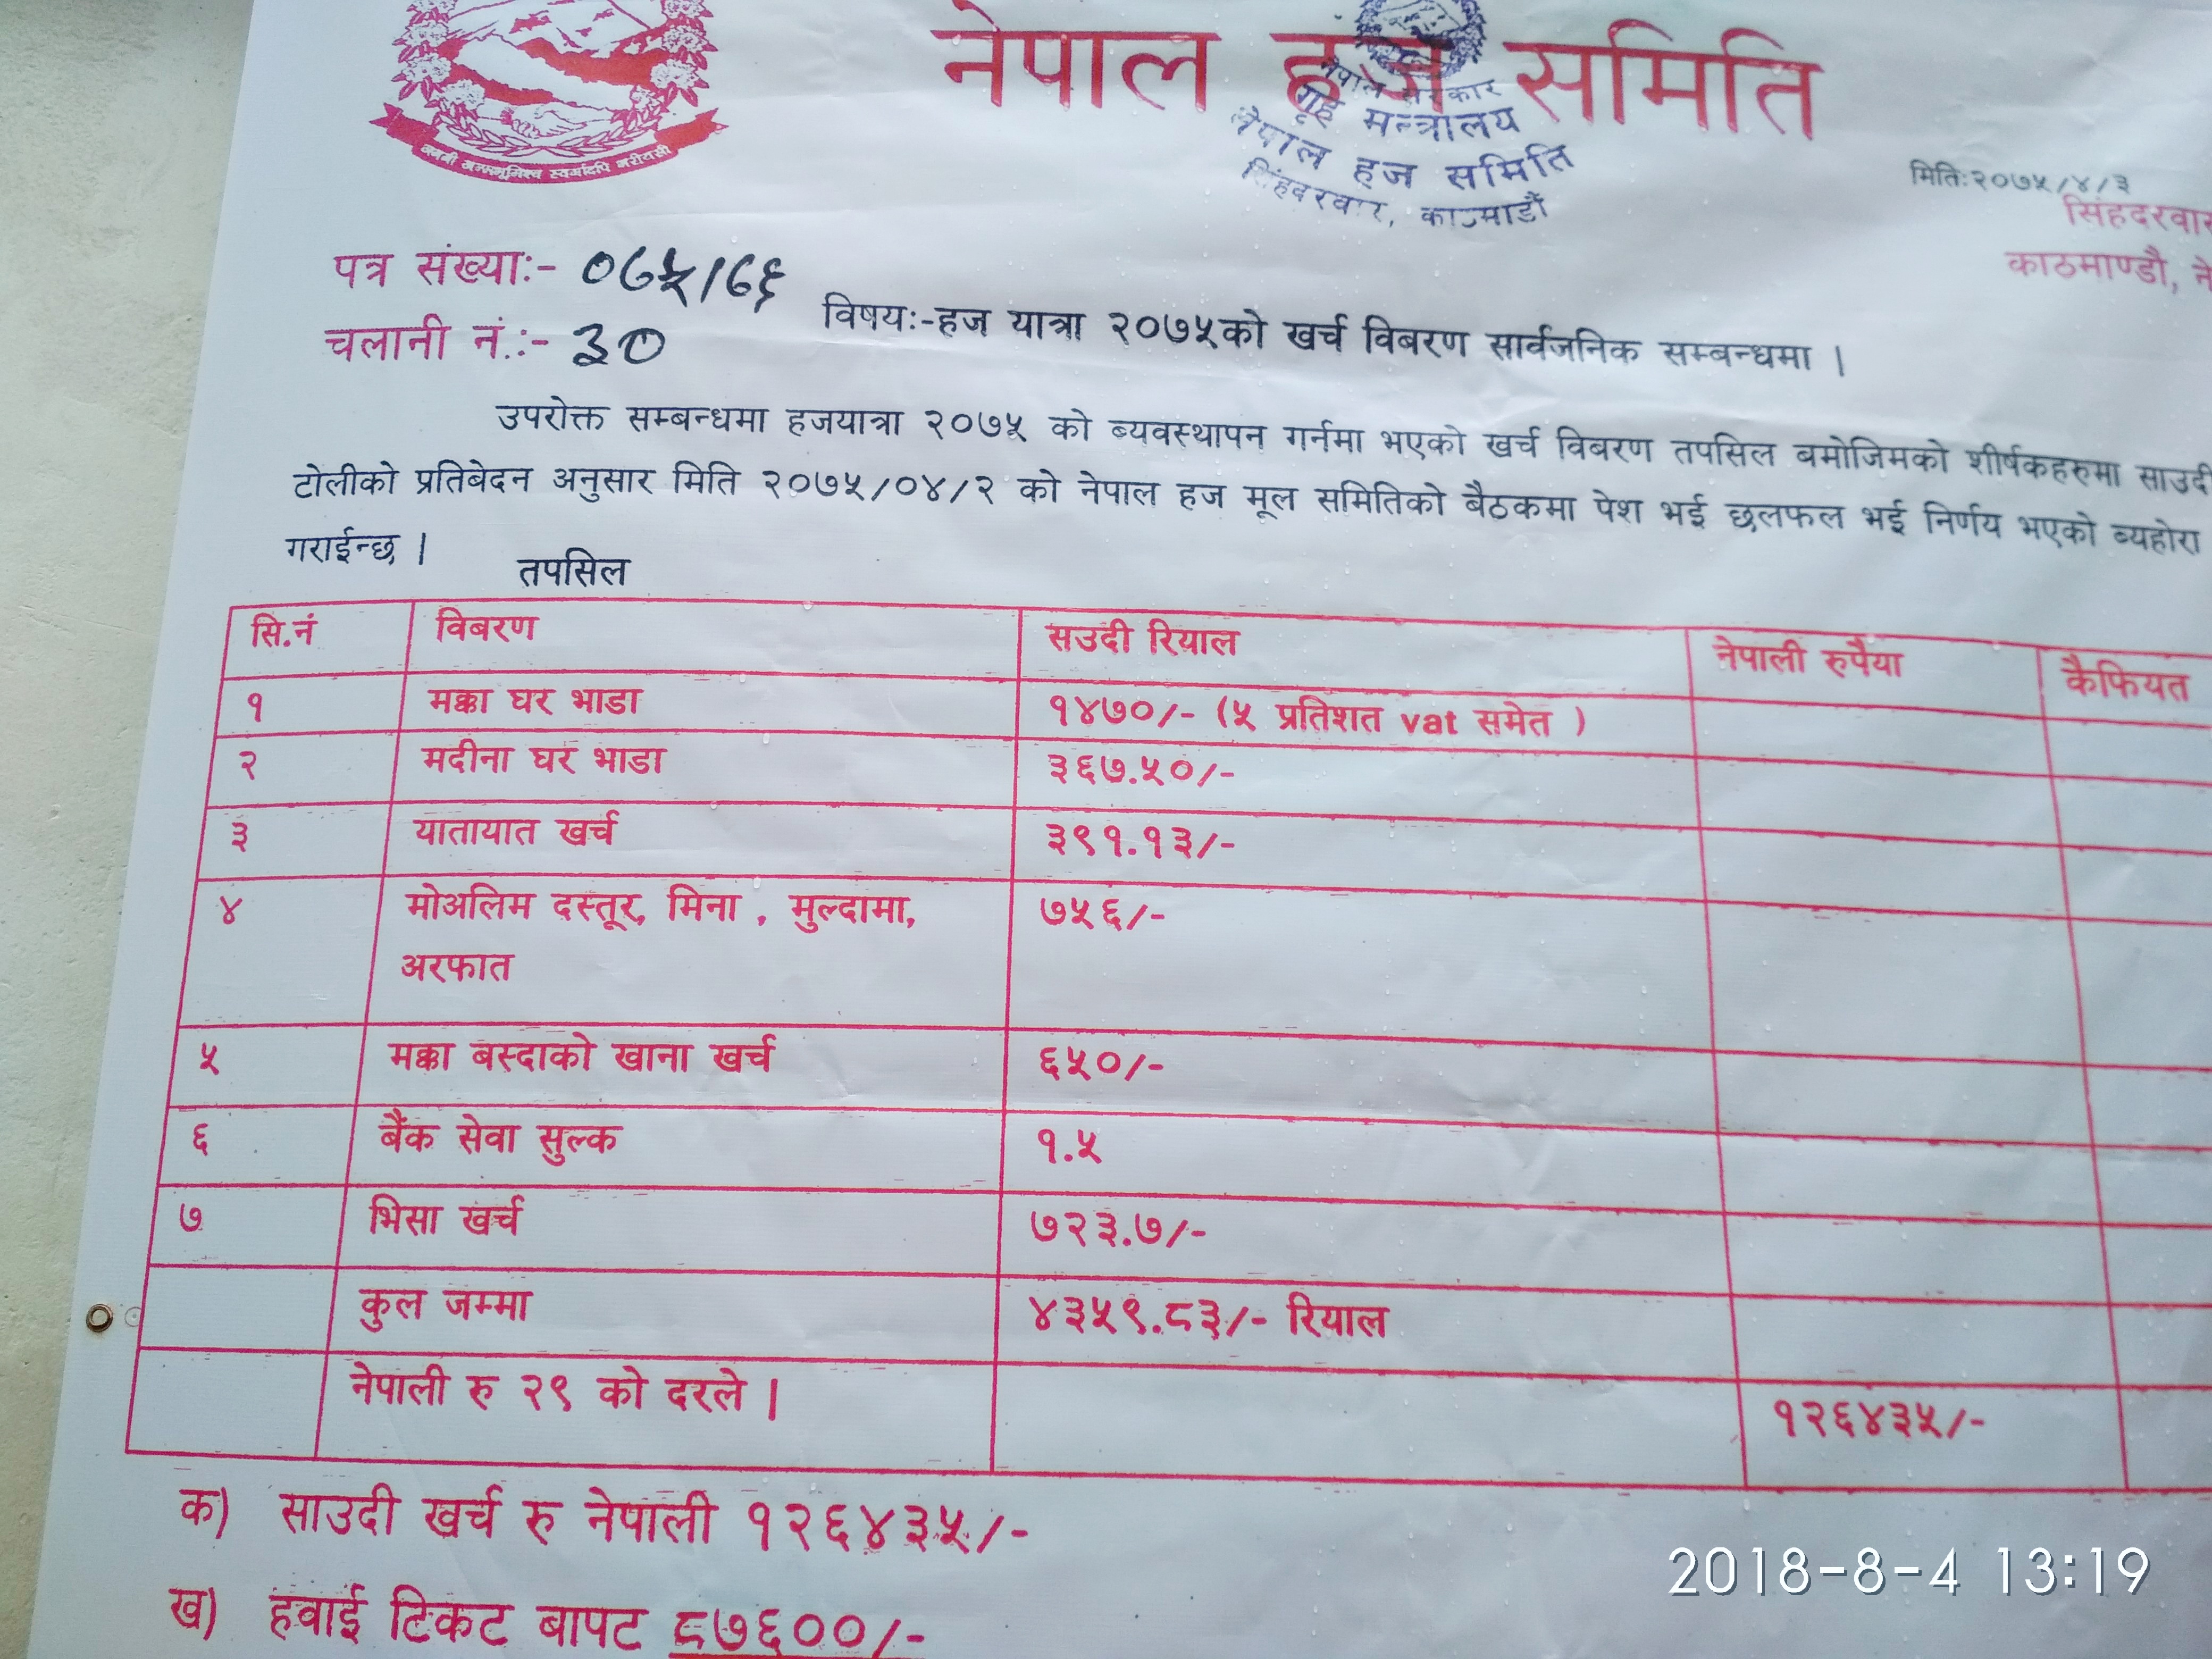 जननी जन्मभूमिश्च स्वर्गादपि गरीयसी
नेपाल हज समिति
नेपाल सरकार
गृह मन्त्रालय
नेपाल हज समिति
सिंहदरवार, काठमाडौं
मिति:२०७५/४/३
सिंहदरवार
काठमाण्डौ, ने
पत्र संख्या:- ०७५/७६
चलानी नं.:- ३०
विषय:-हज यात्रा २०७५को खर्च विबरण सार्वजनिक सम्बन्धमा ।
उपरोक्त सम्बन्धमा हजयात्रा २०७५ को ब्यवस्थापन गर्नमा भएको खर्च विबरण तपसिल बमोजिमको शीर्षकहरुमा साउदी
टोलीको प्रतिबेदन अनुसार मिति २०७५/०४/२ को नेपाल हज मूल समितिको बैठकमा पेश भई छलफल भई निर्णय भएको ब्यहोरा
गराईन्छ ।
तपसिल
सि.नं विबरण सउदी रियाल नेपाली रुपैया कैफियत
१ मक्का घर भाडा १४७०/- (५ प्रतिशत vat समेत )
२ मदीना घर भाडा ३६७.५०/-
३ यातायात खर्च ३९१.१३/-
४ मोअलिम दस्तूर, मिना , मुल्दामा, ७५६/-
अरफात
५ मक्का बस्दाको खाना खर्च ६५०/-
६ बैंक सेवा सुल्क १.५
७ भिसा खर्च ७२३.७/-
कुल जम्मा ४३५९.८३/- रियाल
नेपाली रु २९ को दरले । १२६४३५/-
क) साउदी खर्च रु नेपाली १२६४३५/-
ख) हवाई टिकट बापट ८७६००/-
2018-8-4 13:19